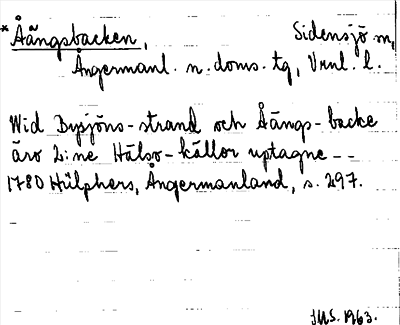 * Åängsbacken, Sidensjö sn,
Ångermanl. n. doms. tg, Vnl. l.
Wid Bysjöns-strand och Åängs-backe
äro 2:ne Hälso-källor uptagne --
1780 Hülphers, Ångermanland, s. 297.
JMS. 1963.